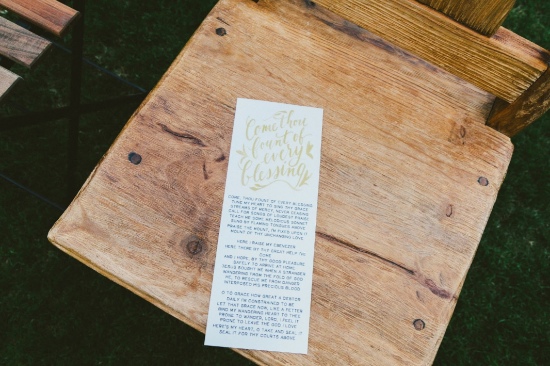 Come, thou
fount of
every
blessing
COME, THOU FOUNT OF EVERY BLESSING
TUNE MY HEART TO SING THY GRACE
STREAMS OF MERCY, NEVER CEASING
CALL FOR SONGS OF LOUDEST PRAISE
TEACH ME SOME MELODIOUS SONNET
SUNG BY FLAMING TONGUES ABOVE
PRAISE THE MOUNT, I'M FIXED UPON IT
MOUNT OF THY UNCHANGING LOVE
HERE I RAISE MY EBENEZER
HERE THERE BY THY GREAT HELP I'VE
COME
AND I HOPE, BY THY GOOD PLEASURE
SAFELY TO ARRIVE AT HOME
JESUS BOUGHT ME WHEN A STRANGER
WANDERING FROM THE FOLD OF GOD
HE, TO RESCUE ME FROM DANGER
INTERPOSED HIS PRECIOUS BLOOD
O TO GRACE HOW GREAT A DEBTOR
DAILY I'M CONSTRAINED TO BE
LET THAT GRACE NOW, LIKE A FETTER
BIND MY WANDERING HEART TO THEE
PRONE TO WANDER, LORD, I FEEL IT
PRONE TO LEAVE THE GOD I LOVE
HERE'S MY HEART, O TAKE AND SEAL IT
SEAL IT FOR THY COURTS ABOVE